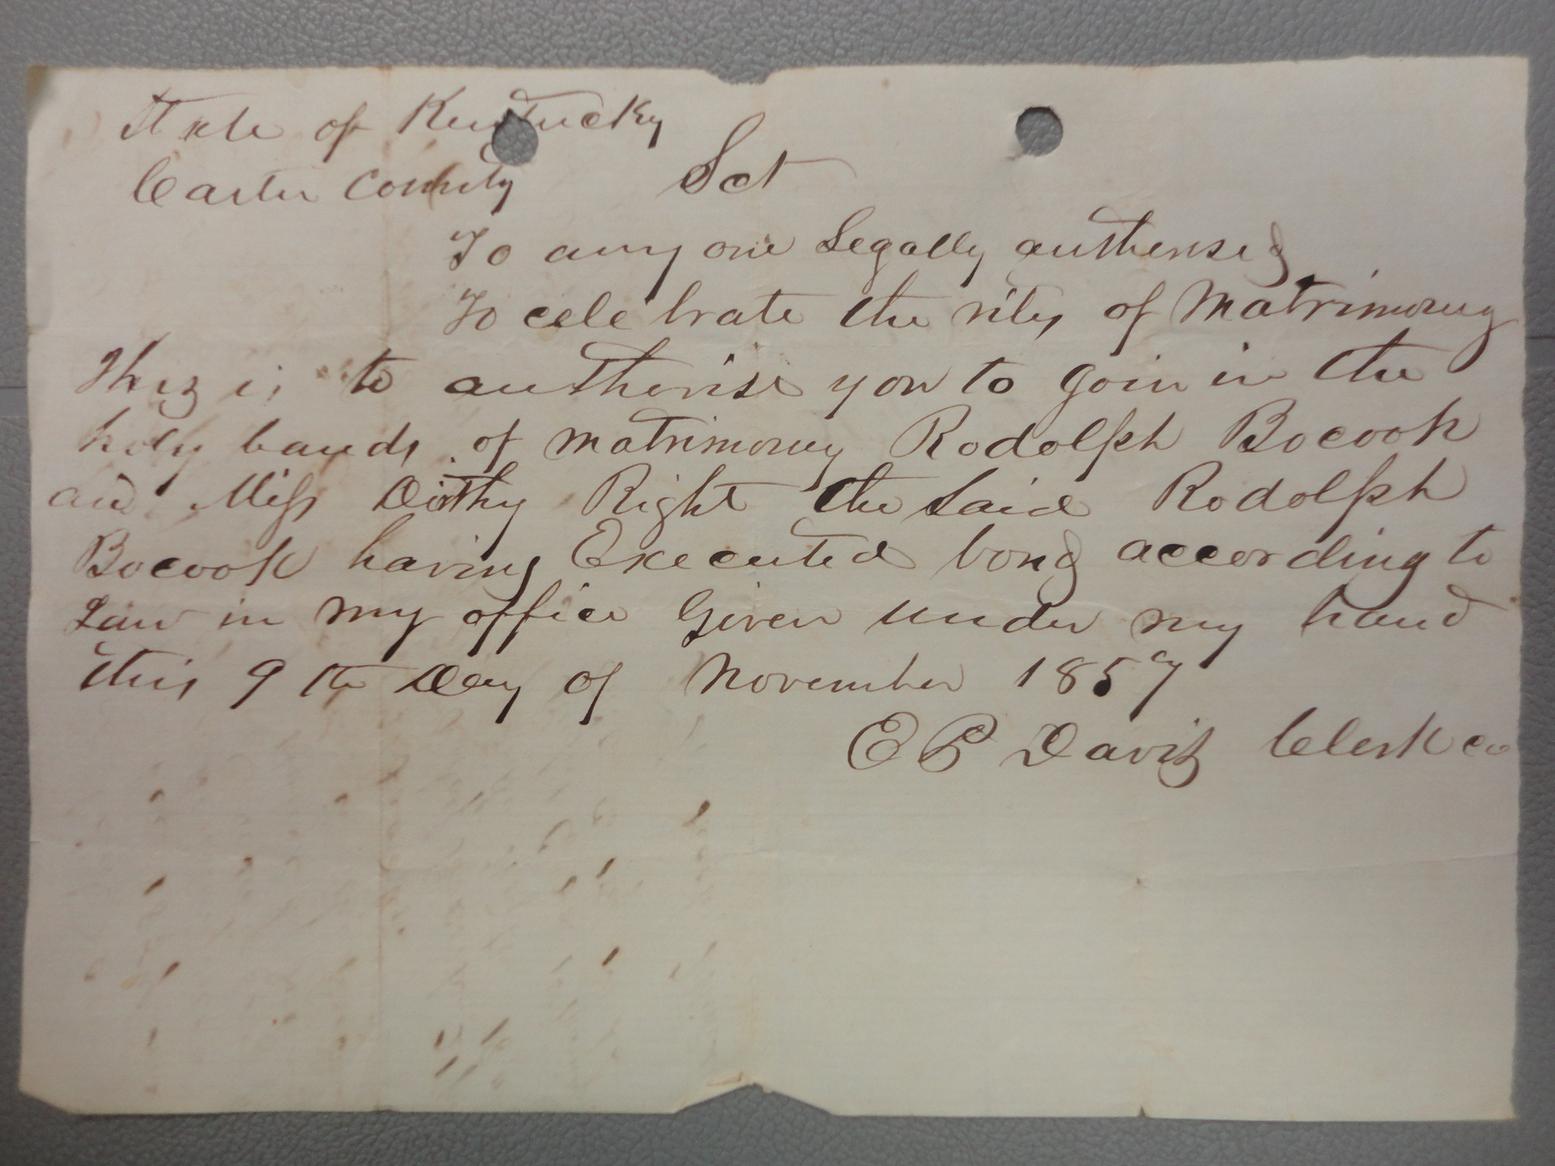 State of Kentucky
Carter County Sct
To any one Legally authorised
To celebrate the rites of Matrimony
This is to authorise you to Join in the
holy bands of matrimony Rodolph Bocook
and Miss Dorthy Right the Said Rodolph
Bocook having Executed bond according to
Law in my office Given under my hand
this 9th Day of November 1857
E P Davis Clerk co